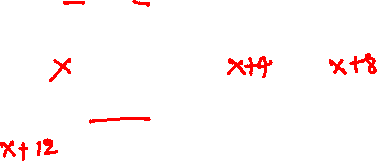 x x+4 x+8
x+12